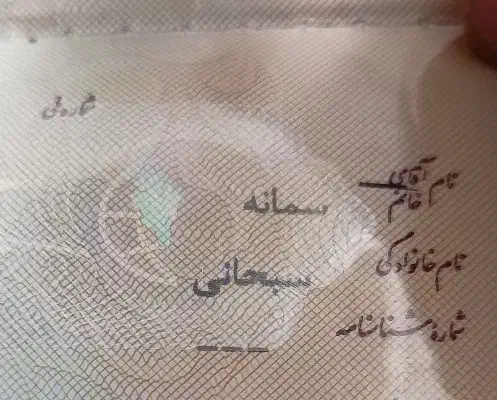 شماره ملی
نام آقای
خانم سمانه
نام خانوادگی سبحانی
شماره شناسنامه ---